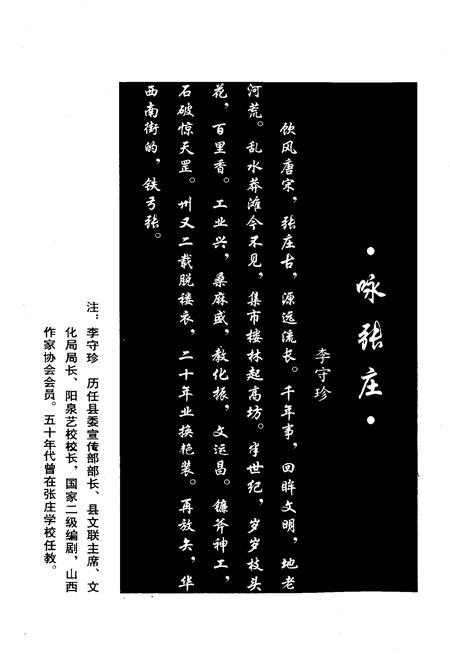 ·咏张庄·
李守珍
饮风唐宋，张庄古，源远流长。千年事，回眸文明，地老
河荒。乱水莽滩今不见，集市楼林起高坊。半世纪，岁岁枝头
花，百里香。工业兴，桑麻盛，教化振，文运昌。镰斧神工，
石破惊天罡。卅又二载脱褛衣，二十年业换艳装。再放矢，华
西南街的，铁弓张。
注：李守珍 历任县委宣传部部长、县文联主席、文
化局局长、阳泉艺校校长，国家二级编剧，山西
作家协会会员。五十年代曾在张庄学校任教。